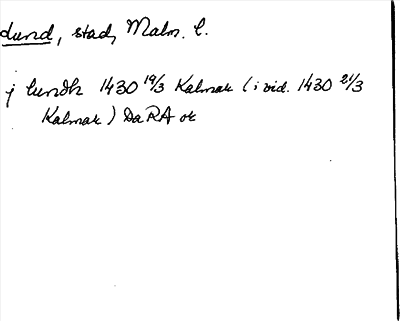 Lund, stad, Malm. l.
j lundh 1430 19/3 Kalmar (i vid. 1430 21/3
Kalmar) DaRA or